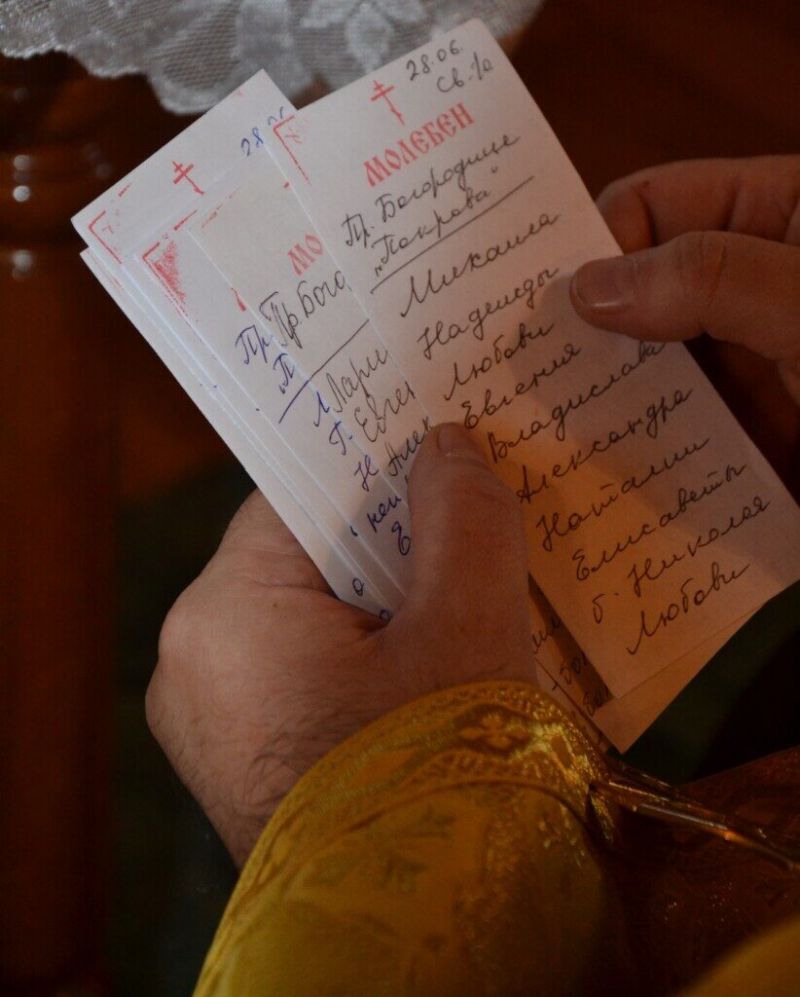 28.06.
Св-10
МОЛЕБЕН
Пр. Богородице
"Покрова"
Михаила
Надежды
Любови
Евгения
Владислава
Александра
Наталии
Елисаветы
б. Николая
Любови
28.06
МО
Пр Бого
Лари
Евген
Алек
Пр
"П